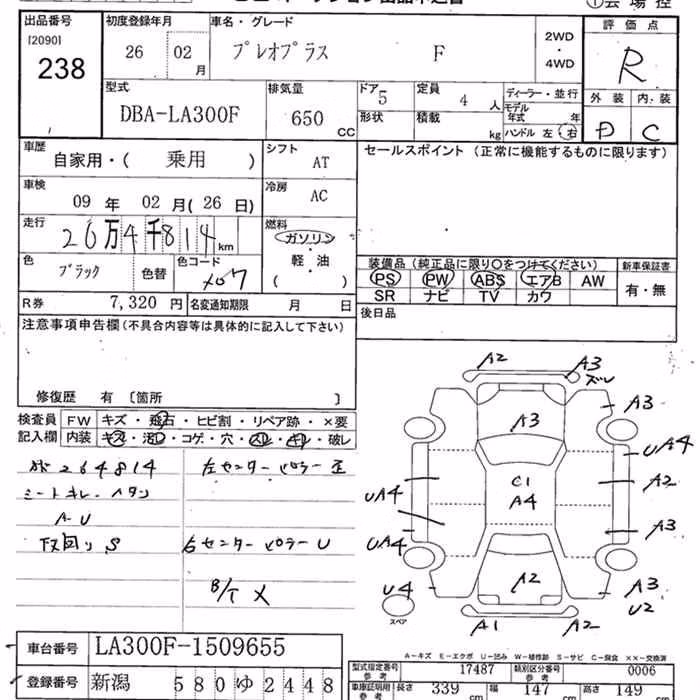 出品番号 初度登録年月 車名・グレード 2WD ・ 4WD 評価点
[2090] 238 26 02 月 プレオプラス F R
型式 排気量 ドア 定員 ディーラー・並行 外装 内装
DBA-LA300F 650 CC 5 4 人 モデル年式 年 D C
形状 積載 kg ハンドル 左 右
車歴 自家用・( 乗用 ) シフト AT セールスポイント (正常に機能するものに限ります)
車検 09 年 02 月( 26 日) 冷房 AC
走行 26万4千814 km 燃料 ガソリン
軽・油
( )
色 ブラック 色替 色コード X07
装備品 (純正品に限り○をつけてください) 新車保証書
PS PW ABS エアB AW 有・無
SR ナビ TV カワ
R券 7,320 円 名変通知期限 月 日 後日品
注意事項申告欄 (不具合内容等は具体的に記入して下さい)
修復歴 有 〔箇所 〕
検査員 FW キズ・飛石・ヒビ割・リペア跡・×要
記入欄 内装 キズ・汚レ・コゲ・穴・スレ・キレ・破レ
264814 左センターピラー歪
シートキレ・ヘタリ
A-U
下回リ S 右センターピラーU
B/P X
A2 A3 ズレ
A3 A3
UA4
C1 A2
UA4 A4
A3
UA4
U4 A2 A3
U2
スペア A1 A2
A-キズ E-エクボ U-凹み W-補修跡 S-サビ C-腐食 ××-交換済
車台番号 LA300F-1509655
型式指定番号 17487 類別区分番号 0006
登録番号 新潟 580 ゆ 2448
車庫証明用 参考 長さ 339 cm 幅 参考 147 cm 高さ 参考 149 cm